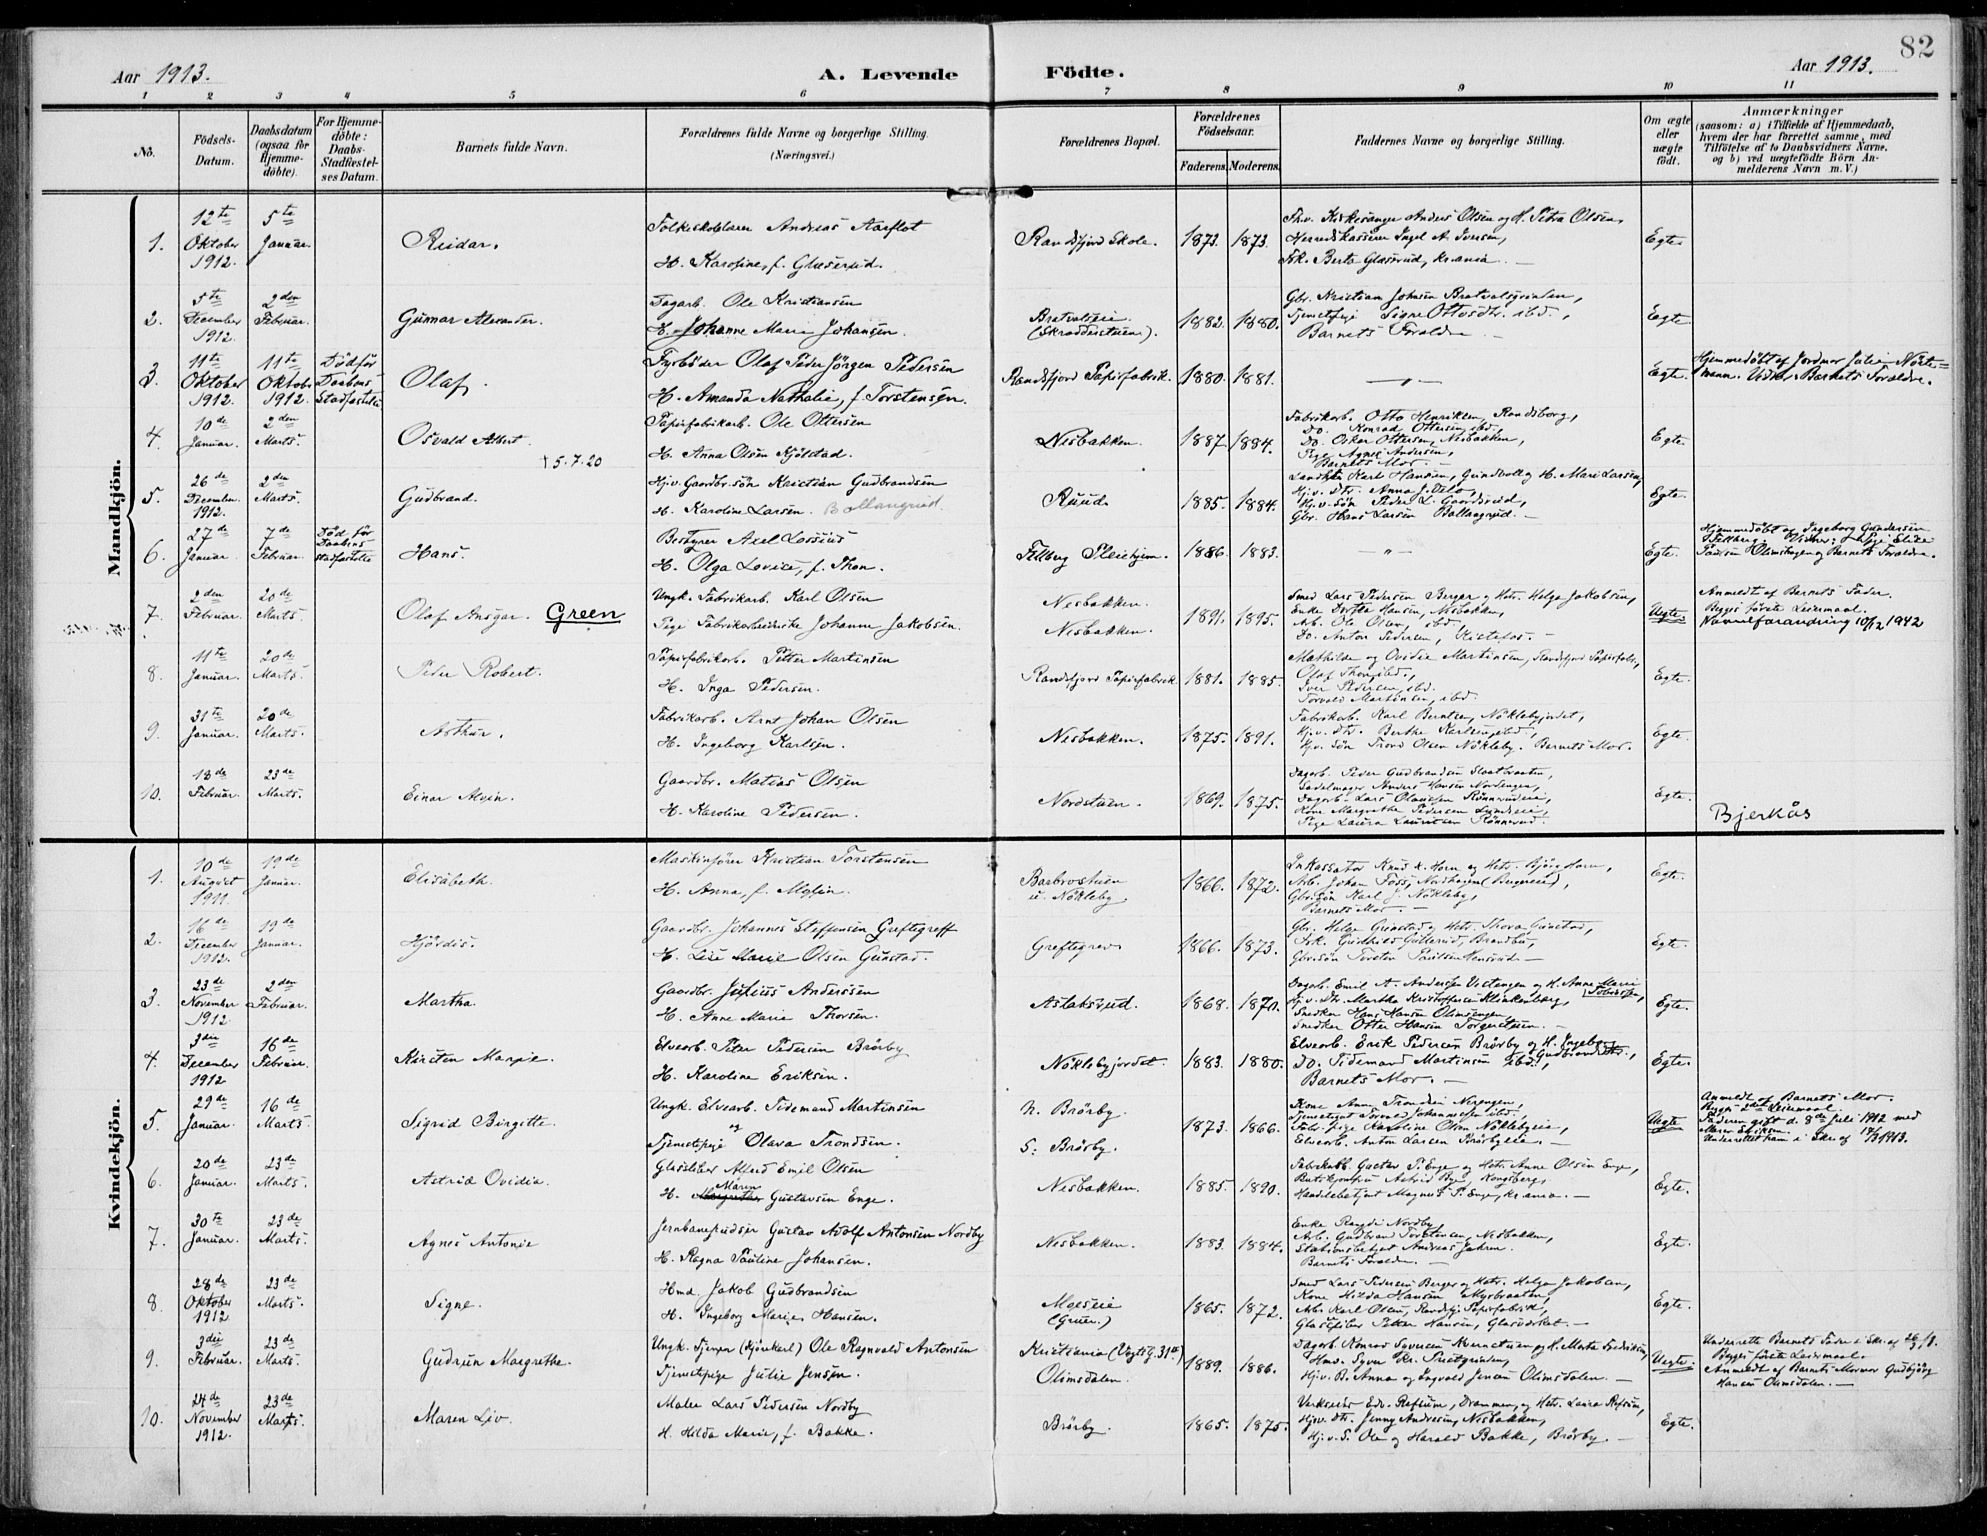 82
Aar 1913.
A. Levende Födte.
Aar 1913.
1 2 3 4 5 6 7 8 9 10 11
No.
Födsels-Datum.
Daabsdatum (ogsaa for Hjemme-döbte).
For Hjemme-döbte: Daabs-Stadfæstel-ses Datum.
Barnets fulde Navn.
Forældrenes fulde Navne og borgerlige Stilling.
(Næringsvei.)
Forældrenes Bopæl.
Forældrenes Födselsaar.
Faderens. Moderens.
Faddernes Navne og borgerlige Stilling.
Om ægte eller uægte födt.
Anmærkninger
(saasom: a) i Tilfælde af Hjemmedaab,
hvem der har forrettet samme, med
Tilföielse af to Daabsvidners Navne,
og b) ved uægtefödte Börn An-
melderens Navn m. V.)
Mandkjön.
1. 12te Oktober 1912. 5te Januar. Reidar.
Folkeskolelærer Andreas Aarflot
H. Karoline, f. Glæserud.
Randsfjord Skole. 1873. 1873.
Fhv. Kirkesanger Anders Olsen og H. Petra Olsen,
Herredskasserer Ingel A. Iversen,
Frk. Berta Glæserud, Kr.ania. —
Egte.
2. 5te December 1912. 2den Februar. Gunnar Alexander.
Dagarb. Ole Kristiansen
H. Johanne Marie Johansen.
Bratvaleie.
1882. 1880.
Gbr. Kristian Johnsen
Tjenestpige Signe Ottosdtr. ibd.,
Barnets Forældre —
Egte.
3. 11te Oktober 1912 11te Oktober 1912. Död før Daabens Stadfæstelse Olaf.
Fyrböder Olaf Peder Jörgen Pedersen
H. Amanda Nathalie, f. Torstensen.
Randsfjord Papirfabrik. 1880. 1881.
— " —
Egte.
Hjemmedöbt af Jordmor Julie
Vidner: Barnets Forældre.
4. 10de Januar. 2den Marts. Osvald Albert. † 5.7.20
Papirfabrikarb. Ole Ottersen
H. Anna Olsen Kjölstad.
Nesbakken. 1887 1884.
Fabrikarb. Otto Henriksen, Randsborg,
Do. Konrad Ottersen, ibd.,
Do. Oskar Ottersen, Nesbakken,
Pige Agnes Andersen,
Barnets Mor. —
Egte.
5. 26de December 1912. 2den Marts. Gudbrand.
Hj.v. Gaardbr.sön Kristian Gudbrandsen
H. Karoline Larsen. Ballangrud.
Ruud. 1885. 1884.
Karl Hansen, Grindvoll og H. Mari Larsen,
Hj.v. dtr. Anna J.
Hj.v. sön Peder L. Gaardsrud,
Gbr. Hans Larsen Ballangrud. —
Egte.
6. 27de Januar. 7de Februar. Död før Daabens Stadfæstelse Hans.
Bestyrer Axel Lossius
H. Olga Lovise, f. Thon.
Felberg Pleiehjem. 1886. 1883.
— " —
Egte.
Hjemmedöbt af Ingeborg Gundersen
Felberg. Vidner: Pleiepige Elise
Paulsen Olimshagen og Barnets Forældre.
7. 2den Februar. 20de Marts. Olaf Ansgar. Green
Ungk. Fabrikarb. Karl Olsen
Pige Fabrikarbeiderske Johanne Jakobsen.
Nesbakken.
Nesbakken.
1891. 1895.
Smed Lars Pedersen Berger og Hstr. Helga Jakobsen,
Enke Dorte Hansen, Nesbakken,
Arb. Ole Olsen, ibd.,
Do. Anton Pedersen, Kistefos. —
Uegte.
Anmeldt af Barnets Fader.
Begges förste Leiermaal.
Navneforandring 10/12 1942
8. 11te Januar. 20de Marts. Peder Robert.
Papirfabrikarb. Petter Martinsen
H. Inga Pedersen.
Randsfjord Papirfabrik. 1881. 1885.
Mathilde og Ovidie Martinsen, Randsfjord Papirfabr.,
Olaf Thon, ibd.,
Iver Pedersen, ibd.
Torvald Martinsen, ibd.
Egte.
9. 31te Januar. 20de Marts. Arthur.
Fabrikarb. Arnt Johan Olsen
H. Ingeborg Karlsen.
Nesbakken. 1875. 1891.
Fabrikarb. Karl Berntsen, Nöklebyjordet,
Hj.v. Dtr. Berthe Karlsen, ibd.,
Hj.v. Sön Trond Olsen Nökleby. Barnets Mor. —
Egte.
10. 18de Februar. 23de Marts. Einar Alvin.
Gaardbr. Matias Olsen
H. Karoline Pedersen.
Nordstuen. 1869. 1875.
Dagarb. Peder Gudbrandsen Slaatbraaten,
Sadelmager Anders Hansen Nordengen,
Dagarb. Lars Olausen Rönnerudeie,
Kone Margrethe Pedersen
Pige Laura Lauritsen Rönnerud. —
Egte.
Bjerkås
Kvindekjön.
1. 10de August 1911. 19de Januar. Elisabeth.
Maskinförer Kristian Torstensen
H. Anna, f. Melin.
Barbrostuen u. Nökleby. 1866. 1872.
Inkassator Knud K. Horn og Hstr. Björg Horn,
Arb. Johan Foss, Nordhagen (Bergereie),
Gbr.sön Karl J. Nökleby,
Barnets Mor. —
Egte.
2. 16de December 1912. 19de Januar. Hjördis.
Gaardbr. Johannes Steffensen Greftegreff
H. Lise Marie Olsen Gunstad.
Greftegrev. 1866. 1873.
Gbr. Helge Grinstad og Hstr. Thora Grinstad,
Frk. Gudhild Gullerud, Brandbu,
Gbr.sön Torsten Poulsen
Egte.
3. 23de November 1912. 2den Februar. Martha.
Gaardbr. Julius Anderssen
H. Anne Marie Thorsen.
Aslaksrud. 1868. 1870.
Dagarb. Emil A. Andersen Vestengen og H. Anne Marie Tobiassen,
Hj.v. Dtr. Marthe Kristoffersen Klinkenberg,
Snedker Hans Hansen Olimsengen,
Snedker Otter Hansen Torgerstuen. —
Egte.
4. 3die December 1912 16de Februar. Kirsten Marie.
Elvearb. Peter Pedersen Brörby
H. Karoline Eriksen.
Nöklebyjordet. 1883. 1880.
Elvearb. Erik Pedersen Brörby og H. Ingeborg Gudbrandsen,
Do. Tidemand Martinsen ibd.,
Barnets Mor. —
Egte.
5. 29de Januar. 16de Marts. Sigrid Birgitte.
Ungk. Elvearb. Tidemand Martinsen
og
Tjenestpige Olava Trondsen.
N. Brörby.
S. Brörby.
1873. 1866.
Kone Anne Trondsen Nerengen,
Tjenestgut Torvald Johannessen ibd.,
Fabr. pige Karoline Olsen Nöklebyeie,
Elvearb. Anton Larsen Brörbyeie. —
Uegte
Anmeldt af Barnets Mor.
Begges 2det Leiermaal.
Faderen gift d. 8de Juli 1912 med
Maren Eriksen.
Underrettet ham i Skr. af 14/3 1913.
6. 20de Januar. 23de Marts. Astrid Ovidia.
Glassliber Alfred Emil Olsen
H. Maren Gustavsen Enge.
Nesbakken. 1885. 1890.
Fabrikarb. Gustav P. Enge og Hstr. Anne Olsen Enge,
Butikjomfru Astrid Bye, Kongsberg,
Handelsbetjent Magnus P. Enge, Kr.ania. —
Egte.
7. 30te Januar. 23de Marts. Agnes Antonie
Jernbanepudser Gustav Adolf Antonsen Nordby
H. Ragna Pauline Johansen.
Nesbakken. 1883. 1884.
Enke Ragde Nordby,
Arb. Gudbrand Torstensen, Nesbakken,
Stationsbetjent Andreas Jahren.
Barnets Forældre. —
Egte.
8. 28de Oktober 1912 23de Marts. Signe.
Hmd. Jakob Gudbrandsen
H. Ingeborg Marie Hansen.
Moeseie (Gruer.) 1865. 1872.
Smed Lars Pedersen Berger og Hstr. Helga Jakobsen,
Kone Hilda Hansen Mysbraaten,
Arb. Karl Olsen, Randsfj. Papirfabrik,
Glassliber Petter Hansen, Glasverket. —
Egte.
9. 3die Februar. 23de Marts. Gudrun Margrethe.
Ungk. Tjener (Kjörekarl) Ole Ragnvald Antonsen
Tjenestpige Julie Jensen.
Kristiania (Vogts G. 31)
Olimsdalen.
1889. 1886.
Dagarb. Konrad Syversen Kvernstuen og H. Marta Fredriksen,
Hmd. Syver Kr. Prestgrinden,
Hj.v. B. Anna og Ingvald Jensen Olimsdalen. —
Uegte.
Underrette Barnets Fader i Skr. af
Begges förste Leiermaal.
Anmeldt af Barnets Mormor Gudbjörg
Hansen Olimsdalen. —
10. 24de November 1912. 23de Marts. Maren Liv.
Maler Lars Pedersen Nordby
H. Hilda Marie, f. Bakke.
Brörby. 1865. 1875.
Verkseier Edv. Refsum, Drammen, og Hstr. Laura Refsum,
Hj.v. dtr. Jenny Andresen, Nesbakken,
Hj.v. S. Ole og Harald Bakke, Brörby. —
Egte.